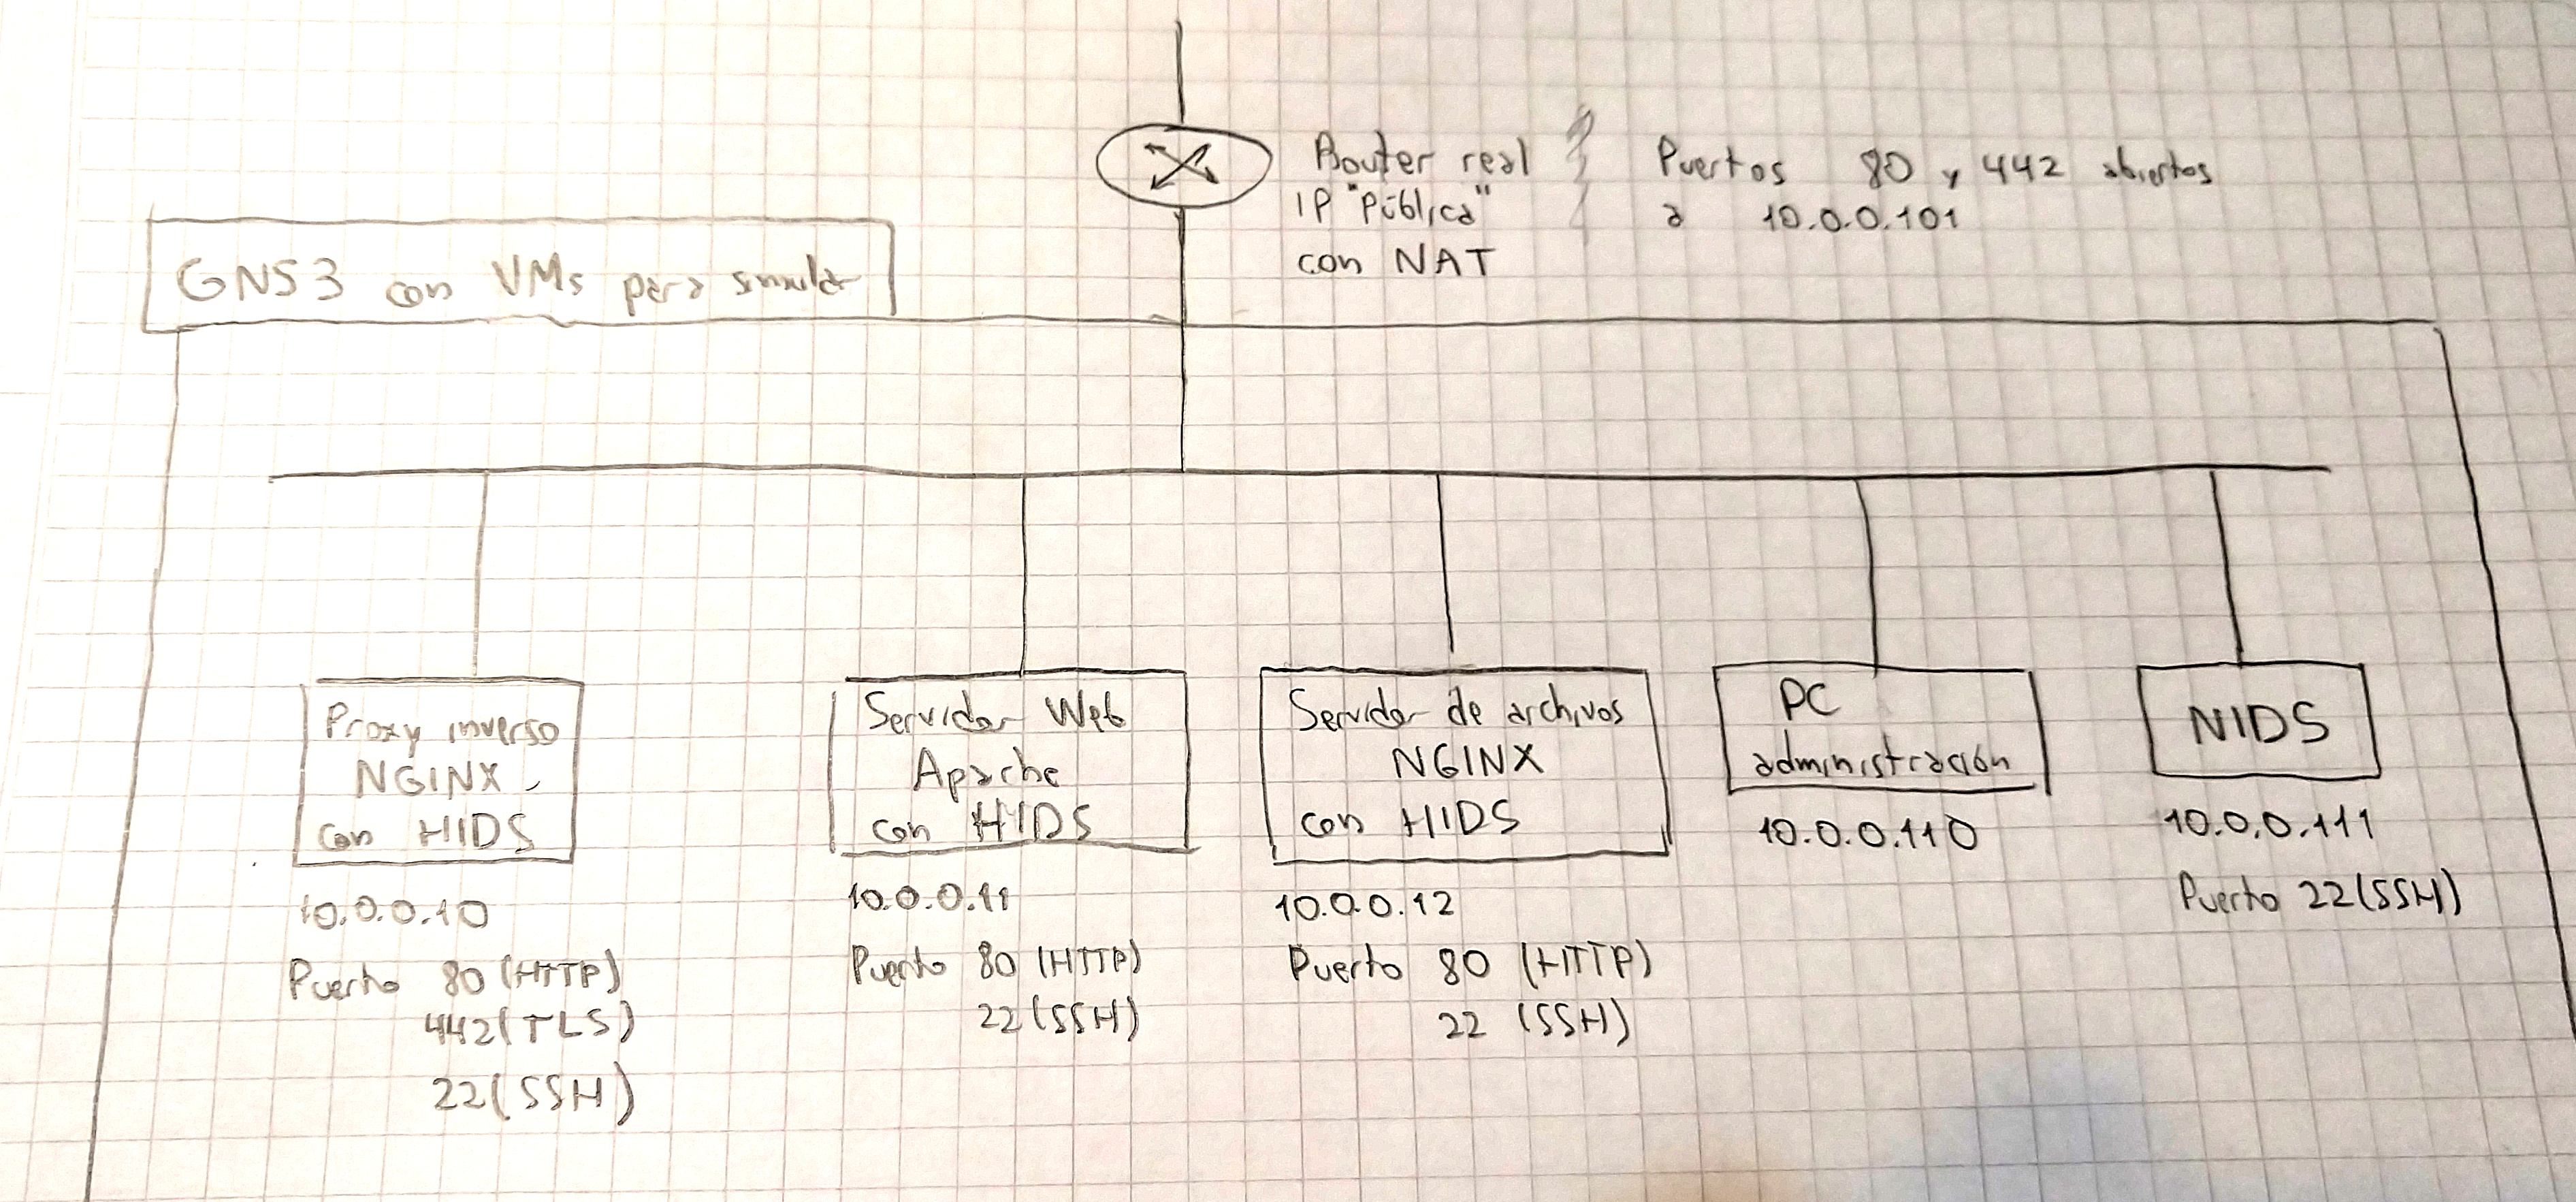 Router real
IP "Pública"
con NAT
Puertos 80 y 442 abiertos
a 10.0.0.101
GNS3 con VMs para simular
Proxy inverso
NGINX
con HIDS
10.0.0.10
Puerto 80 (HTTP)
442 (TLS)
22 (SSH)
Servidor Web
Apache
con HIDS
10.0.0.11
Puerto 80 (HTTP)
22 (SSH)
Servidor de archivos
NGINX
con HIDS
10.0.0.12
Puerto 80 (HTTP)
22 (SSH)
PC
administración
10.0.0.110
NIDS
10.0.0.111
Puerto 22 (SSH)